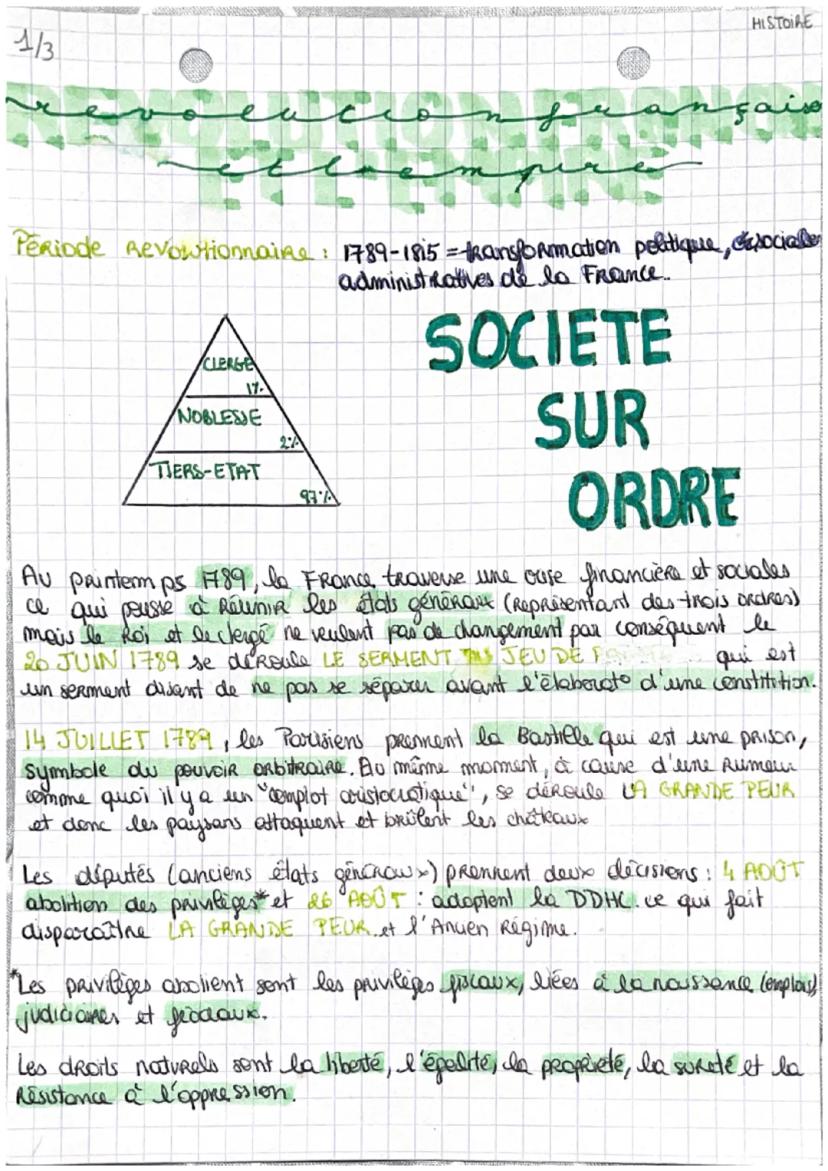 HISTOIRE
1/3
revolution française
et l'empire
Période Revolutionnaire : 1789-1815 = transformation politique, sociale
administratives de la France.
SOCIETE
SUR
ORDRE
CLERGE
1%
NOBLESSE
2%
TIERS-ETAT
97%
Au printemps 1789, la France traverse une crise financière et sociales
ce qui pousse à Réunir les états généraux (Représentant des trois ordres)
mais le Roi et le clergé ne veulent pas de changement par conséquent le
20 JUIN 1789 se déroule LE SERMENT DU JEU DE qui est
un serment disant de ne pas se séparer avant l'élaborat° d'une constitition.
14 JUILLET 1789, les Parisiens prennent la Bastille qui est une prison,
symbole du pouvoir arbitraire. Au même moment, à cause d'une Rumeur
comme quoi il y a un "complot aristocratique", se déroule LA GRANDE PEUR
et donc les paysans attaquent et brûlent les châteaux
Les députés (anciens états généraux) prennent deux décisions : 4 AOÛT
abolition des privilèges* et 26 AOÛT : adoptent la DDHC. ce qui fait
disparaître LA GRANDE PEUR et l'Ancien Régime.
*Les privilèges abolient sont les privilèges fiscaux, liées à la naissance (emplois)
judiciaires et féodaux.
Les droits naturels sont la liberté, l'égalité, la propriété, la sureté et la
Résistance à l'oppression.